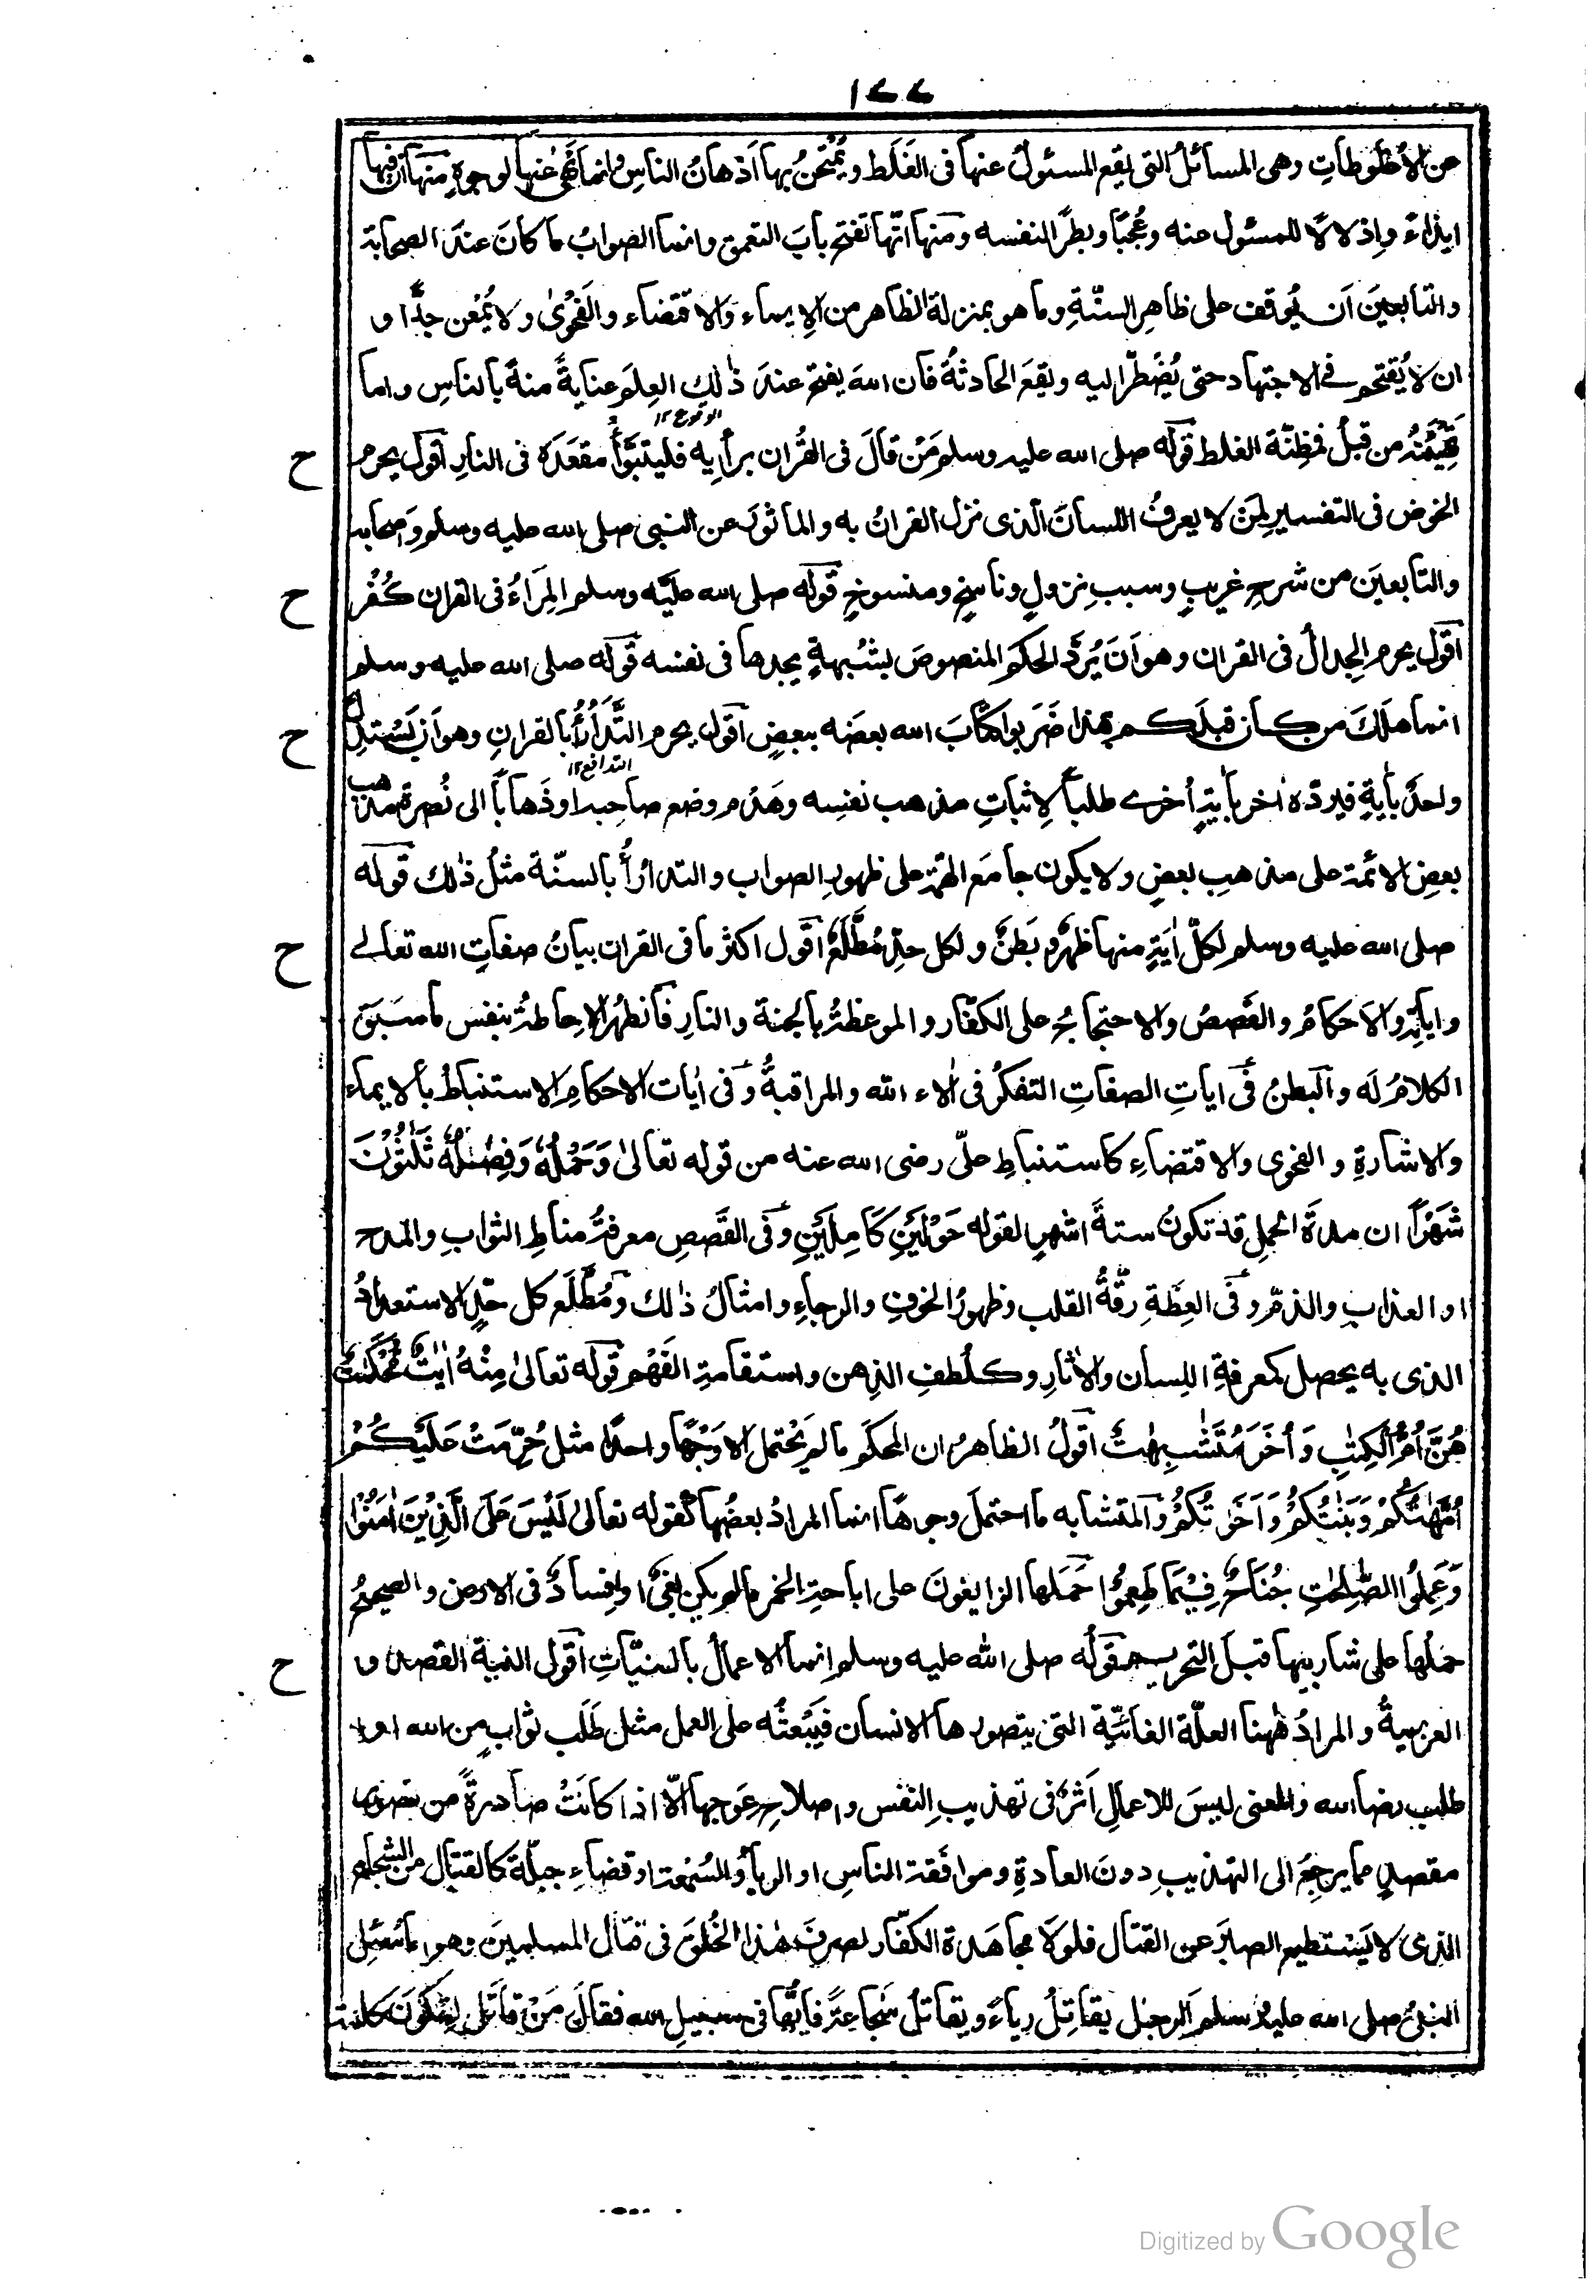 ١٧٧
عن الأغلوطات وهى المسائلُ التى يقع المسئولُ عنها فى الغَلَط ويُمْتَحَنُ بها اَذهانُ الناسِ وانما نَهى عنها لوجوهٍ منها ان فيها
ايذاءً واِذلالًا للمسئول عنه وعُجْبًا وبطرًا لنفسه ومنها انّها تفتح بابَ التعمق وانما الصوابُ ما كانَ عندَ الصحابة
والتابعينَ اَن يُوقف على ظاهِرِ السنّةِ وما هو بمنزلة الظاهر من الاِيماء والاقتضاء والفَحْوٰى ولا يُمْعن جِدًّا و
ان لا يُقتحم فى الاجتهاد حتى يُضْطرّ اليه ويقعَ الحادثةُ فان الله يفتح عندَ ذٰلك العِلمَ عنايةً منهُ بالناسِ واما
الوقوع ١٢
تَهِيْئَتُه من قبلُ فمظِنّة الغلط قوله صلى الله عليه وسلم مَنْ قالَ فى القُران برأيه فليتبَوَّأْ مقعَدَه فى النارِ اقول يحرم
ح
الخوض فى التفسير لِمَن لا يعرفُ اللسانَ الّذى نزل القرانُ به والماثورَ عن النبى صلى الله عليه وسلم وَاصحابه
والتابعينَ من شرحِ غريبٍ وسببِ نزولٍ وناسخٍ ومنسوخٍ قوله صلى الله عليه وسلم المِرَاءُ فى القران كُفْر
ح
اقول يحرم الجِدالُ فى القران وهو اَن يُرَدّ الحكم المنصوص بشُبهةٍ يجدها فى نفسه قوله صلى الله عليه وسلم
انما هلَكَ من كان قبلَكم بهٰذا ضَرَبوا كتابَ الله بعضَه ببعضٍ اقول يحرم التَّدَارُأُ بالقرانِ وهو اَن يَسْتدِلَّ
ح
التدافع ١٢
واحدٌ بأيةٍ فيردّه اٰخر بأيةٍ اُخرى طلبًا لِاثباتِ مذهب نفسِه وهَدم وضع صاحبه اوذَهابًا الى نُصرة مذهب
بعضِ الائمة على مذهبِ بعضٍ ولا يكون جامعَ الهمّة على ظهورِ الصواب والتدارُأُ بالسنّة مثلُ ذٰلك قوله
صلى الله عليه وسلم لِكلّ اٰيةٍ منها ظَهرٌ وبَطنٌ ولكل حدٍّ مُطَّلَعٌ اقول اكثر ما فى القران بيانُ صفاتِ الله تعالى
ح
واٰياتِه والاَحكامُ والقَصصُ والاحتجاجُ على الكفّار والموعظةُ بالجنة والنارِ فالظهرُ الاِحاطةُ بنفس ما سَبَقَ
الكلامُ لَه والبطنُ فى اٰياتِ الصفاتِ التفكرُ فى اٰلاء الله والمراقبةُ وَفى اٰيات الاحكامِ الاستنباطُ بالايماء
والاشارةِ والفحوى والاقتضاءِ كاستنباطِ علىّ رضى الله عنه من قوله تعالىٰ وَحَمْلُهٗ وَفِصَالُهٗ ثَلٰثُوْنَ
شَهْرًا ان مدةَ الحملِ قد تكونُ ستةَ اشهرٍ لقوله حَوْلَيْنِ كَامِلَيْنِ وَفى القَصصِ معرفةُ مناطِ الثوابِ والمدح
اوالعذابِ والذمّ وَفى العِظَةِ رقّةُ القلب وظهورُ الخوفِ والرجاءِ وامثالُ ذٰلك ومُطَّلَع كل حَدٍّ الاستعدادُ
الذى به يحصل كمعرفةِ اللِسان والاٰثارِ وكلُطفِ الذِهن واستقامةِ الفَهْم قوله تعالىٰ مِنْهُ اٰيٰتٌ مُّحْكَمٰتٌ
هُنَّ اُمُّ الْكِتٰبِ وَاُخَرُ مُتَشٰبِهٰتٌ اقولُ الظاهرُ ان المحكَم ما لم يَحْتمل الا وَجْهًا واحدًا مثل حُرِّمَتْ عَلَيْكُمْ
اُمَّهٰتُكُمْ وَبَنٰتُكُمْ وَاَخَوٰتُكُمْ والمتشابه ما احتملَ وجوهًا انما المرادُ بعضُها كقوله تعالىٰ لَيْسَ عَلَى الَّذِيْنَ اٰمَنُوْا
وَعَمِلُوا الصّٰلِحٰتِ جُنَاحٌ فِيْمَا طَعِمُوْا حَمَلها الزايغونَ على اباحةِ الخمر ما لم يكن بغىٌ اواِفسادٌ فى الارض والصحيحُ
حَملُها على شاربيها قبلَ التحريم قوله صلى الله عليه وسلم انما الاعمالُ بالنيّاتِ اقول النية القصد و
ح
العزيمةُ والمرادُ هٰهنا العلّة الغائيّة التى يتصورها الانسان فيَبْعثُه على العمل مثل طَلَب ثوابٍ من الله او
طلبِ رضا الله والمعنى ليسَ للاعمالِ اَثرٌ فى تهذيبِ النفس واصلاحِ عِوَجها الّا اذا كانَتْ صادرةً من تصور
مقصدٍ مما يرجعُ الى التهذيبِ دونَ العادةِ وموافقة الناسِ او الرياءِ والسُمْعة اوقضاءِ جبلّة كالقتال من الشجاع
الذى لا يَسْتطيع الصبرَ عن القتال فلولا مجاهدة الكفّار لصرفَ هٰذا الخُلُقَ فى قتال المسلمينَ وهو ما سُئِل
النبىُّ صلى الله عليه وسلم الرجلُ يقاتلُ رياءً ويقاتلُ شجاعةً فايُّها فى سبيلِ الله فقالَ مَنْ قاتَل لِتكُونَ كلمة
Digitized by Google